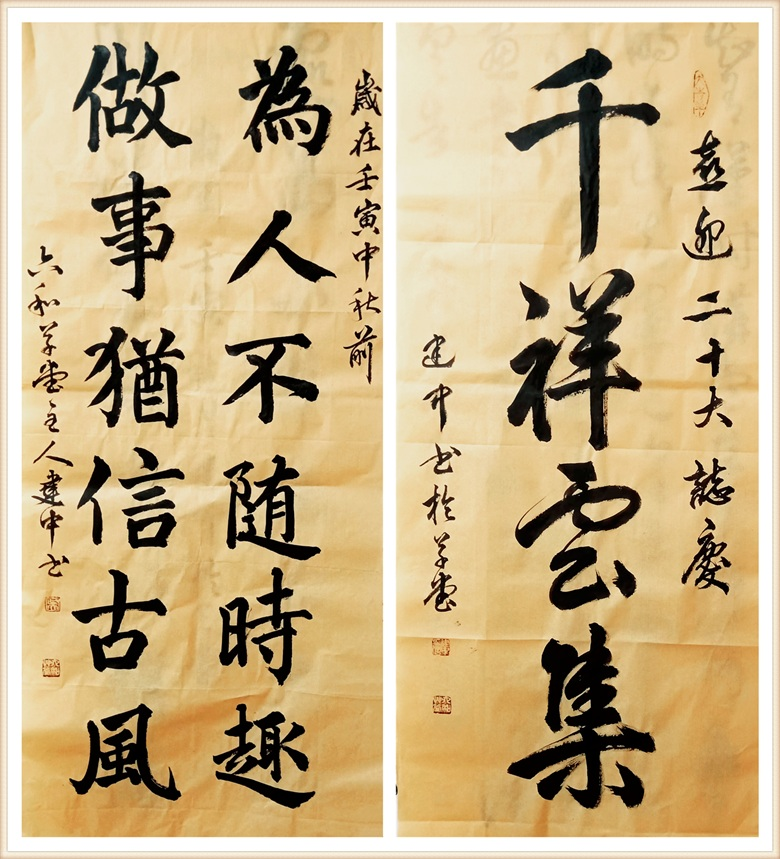 喜迎二十大誌慶
千祥雲集
建中书於草堂
歲在壬寅中秋前
為人不随時趣
做事猶信古風
六和草堂主人建中书